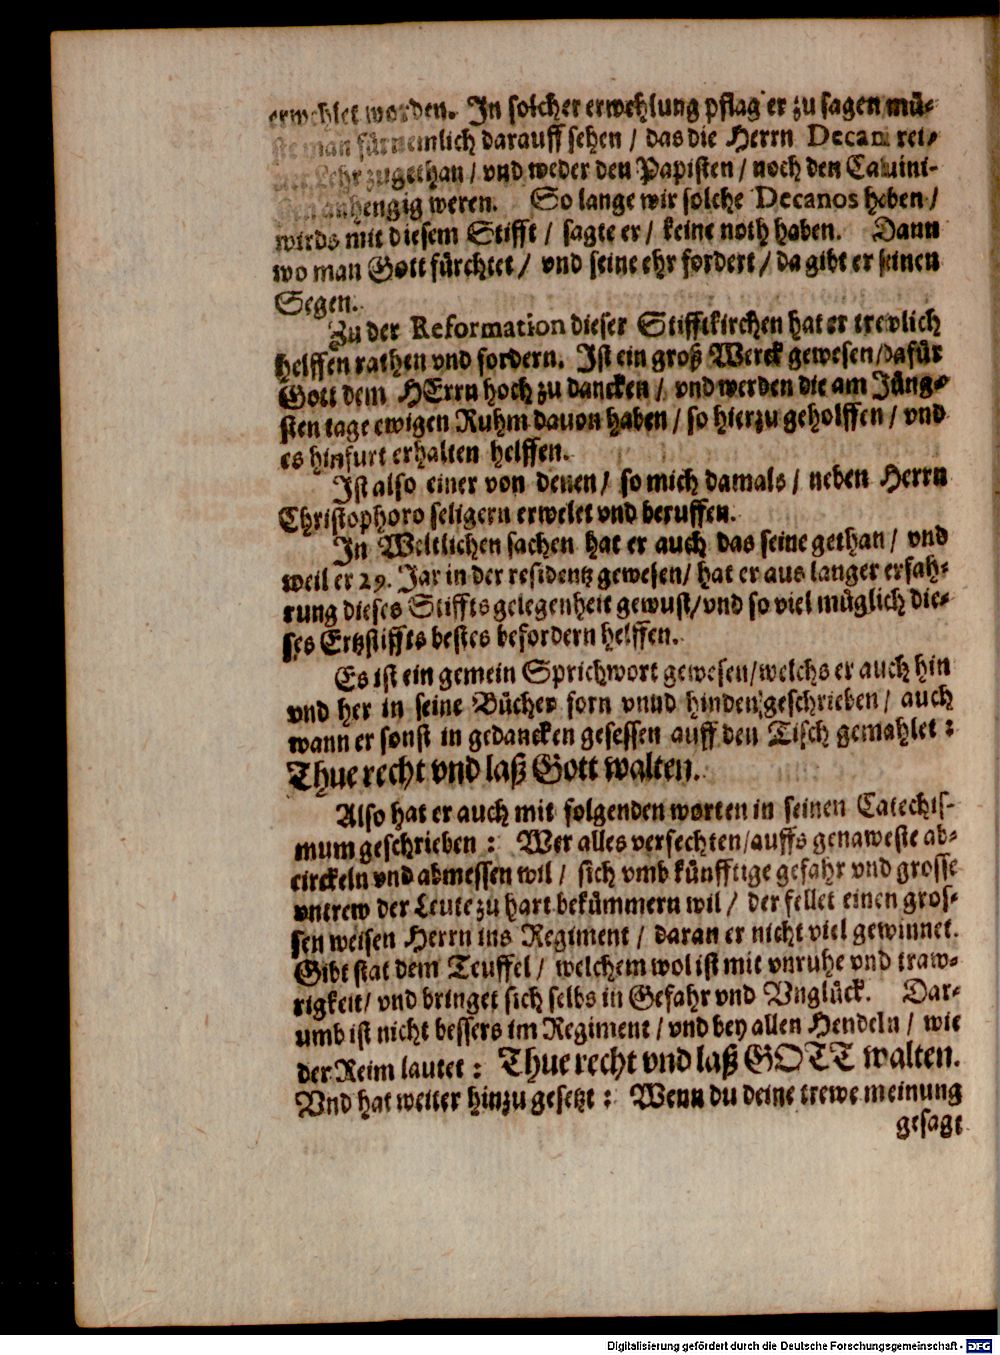 erwehlet worden. In solcher erwehlung pflag er zu sagen mü-
ste man fürnemlich darauff sehen / das die Herrn Decani rei-
ner Lehr zugethan / vnd weder den Papisten / noch den Caluini-
sten anhengig weren. So lange wir solche Decanos heben /
wirds mit diesem Stifft / sagte er / keine noth haben. Dann
wo man Gott fürchtet / vnd seine ehr fordert / da gibt er seinen
Segen.
Zu der Reformation dieser Stifftkirchen hat er trewlich
helffen rathen vnd fordern. Ist ein groß Werck gewesen/dafür
Gott dem HErrn hoch zu dancken / vnd werden die am Jüng-
sten tage ewigen Ruhm dauon haben / so hierzu geholffen / vnd
es hinfurt erhalten helffen.
Ist also einer von denen / so mich damals / neben Herrn
Christophoro seligern erwelet vnd beruffen.
In Weltlichen sachen hat er auch das seine gethan / vnd
weil er 29. Jar in der residentz gewesen/ hat er aus langer erfah-
rung dieses Stiffts gelegenheit gewust/vnd so viel müglich die-
ses Ertzstiffts bestes befordern helffen.
Es ist ein gemein Sprichwort gewesen/welchs er auch hin
vnd her in seine Bücher forn vnnd hinden geschrieben / auch
wann er sonst in gedancken gesessen auff den Tisch gemahlet :
Thue recht vnd laß Gott walten.
Also hat er auch mit folgenden worten in seinen Catechis-
mum geschrieben : Wer alles verfechten/auffs genaweste ab-
circkeln vnd abmessen wil / sich vmb künfftige gefahr vnd grosse
vntrew der Leute zu hart bekümmern wil / der fellet einen gros-
sen weisen Herrn ins Regiment / daran er nicht viel gewinnet.
Gibt stat dem Teuffel / welchem wol ist mit vnruhe vnd traw-
rigkeit/ vnd bringet sich selbs in Gefahr vnd Vnglück. Dar-
umb ist nicht bessers im Regiment / vnd bey allen Hendeln / wie
der Reim lautet : Thue recht vnd laß GOTT walten.
Vnd hat weiter hinzu gesetzt : Wenn du deine trewe meinung
gesagt
Digitalisierung gefördert durch die Deutsche Forschungsgemeinschaft - DFG